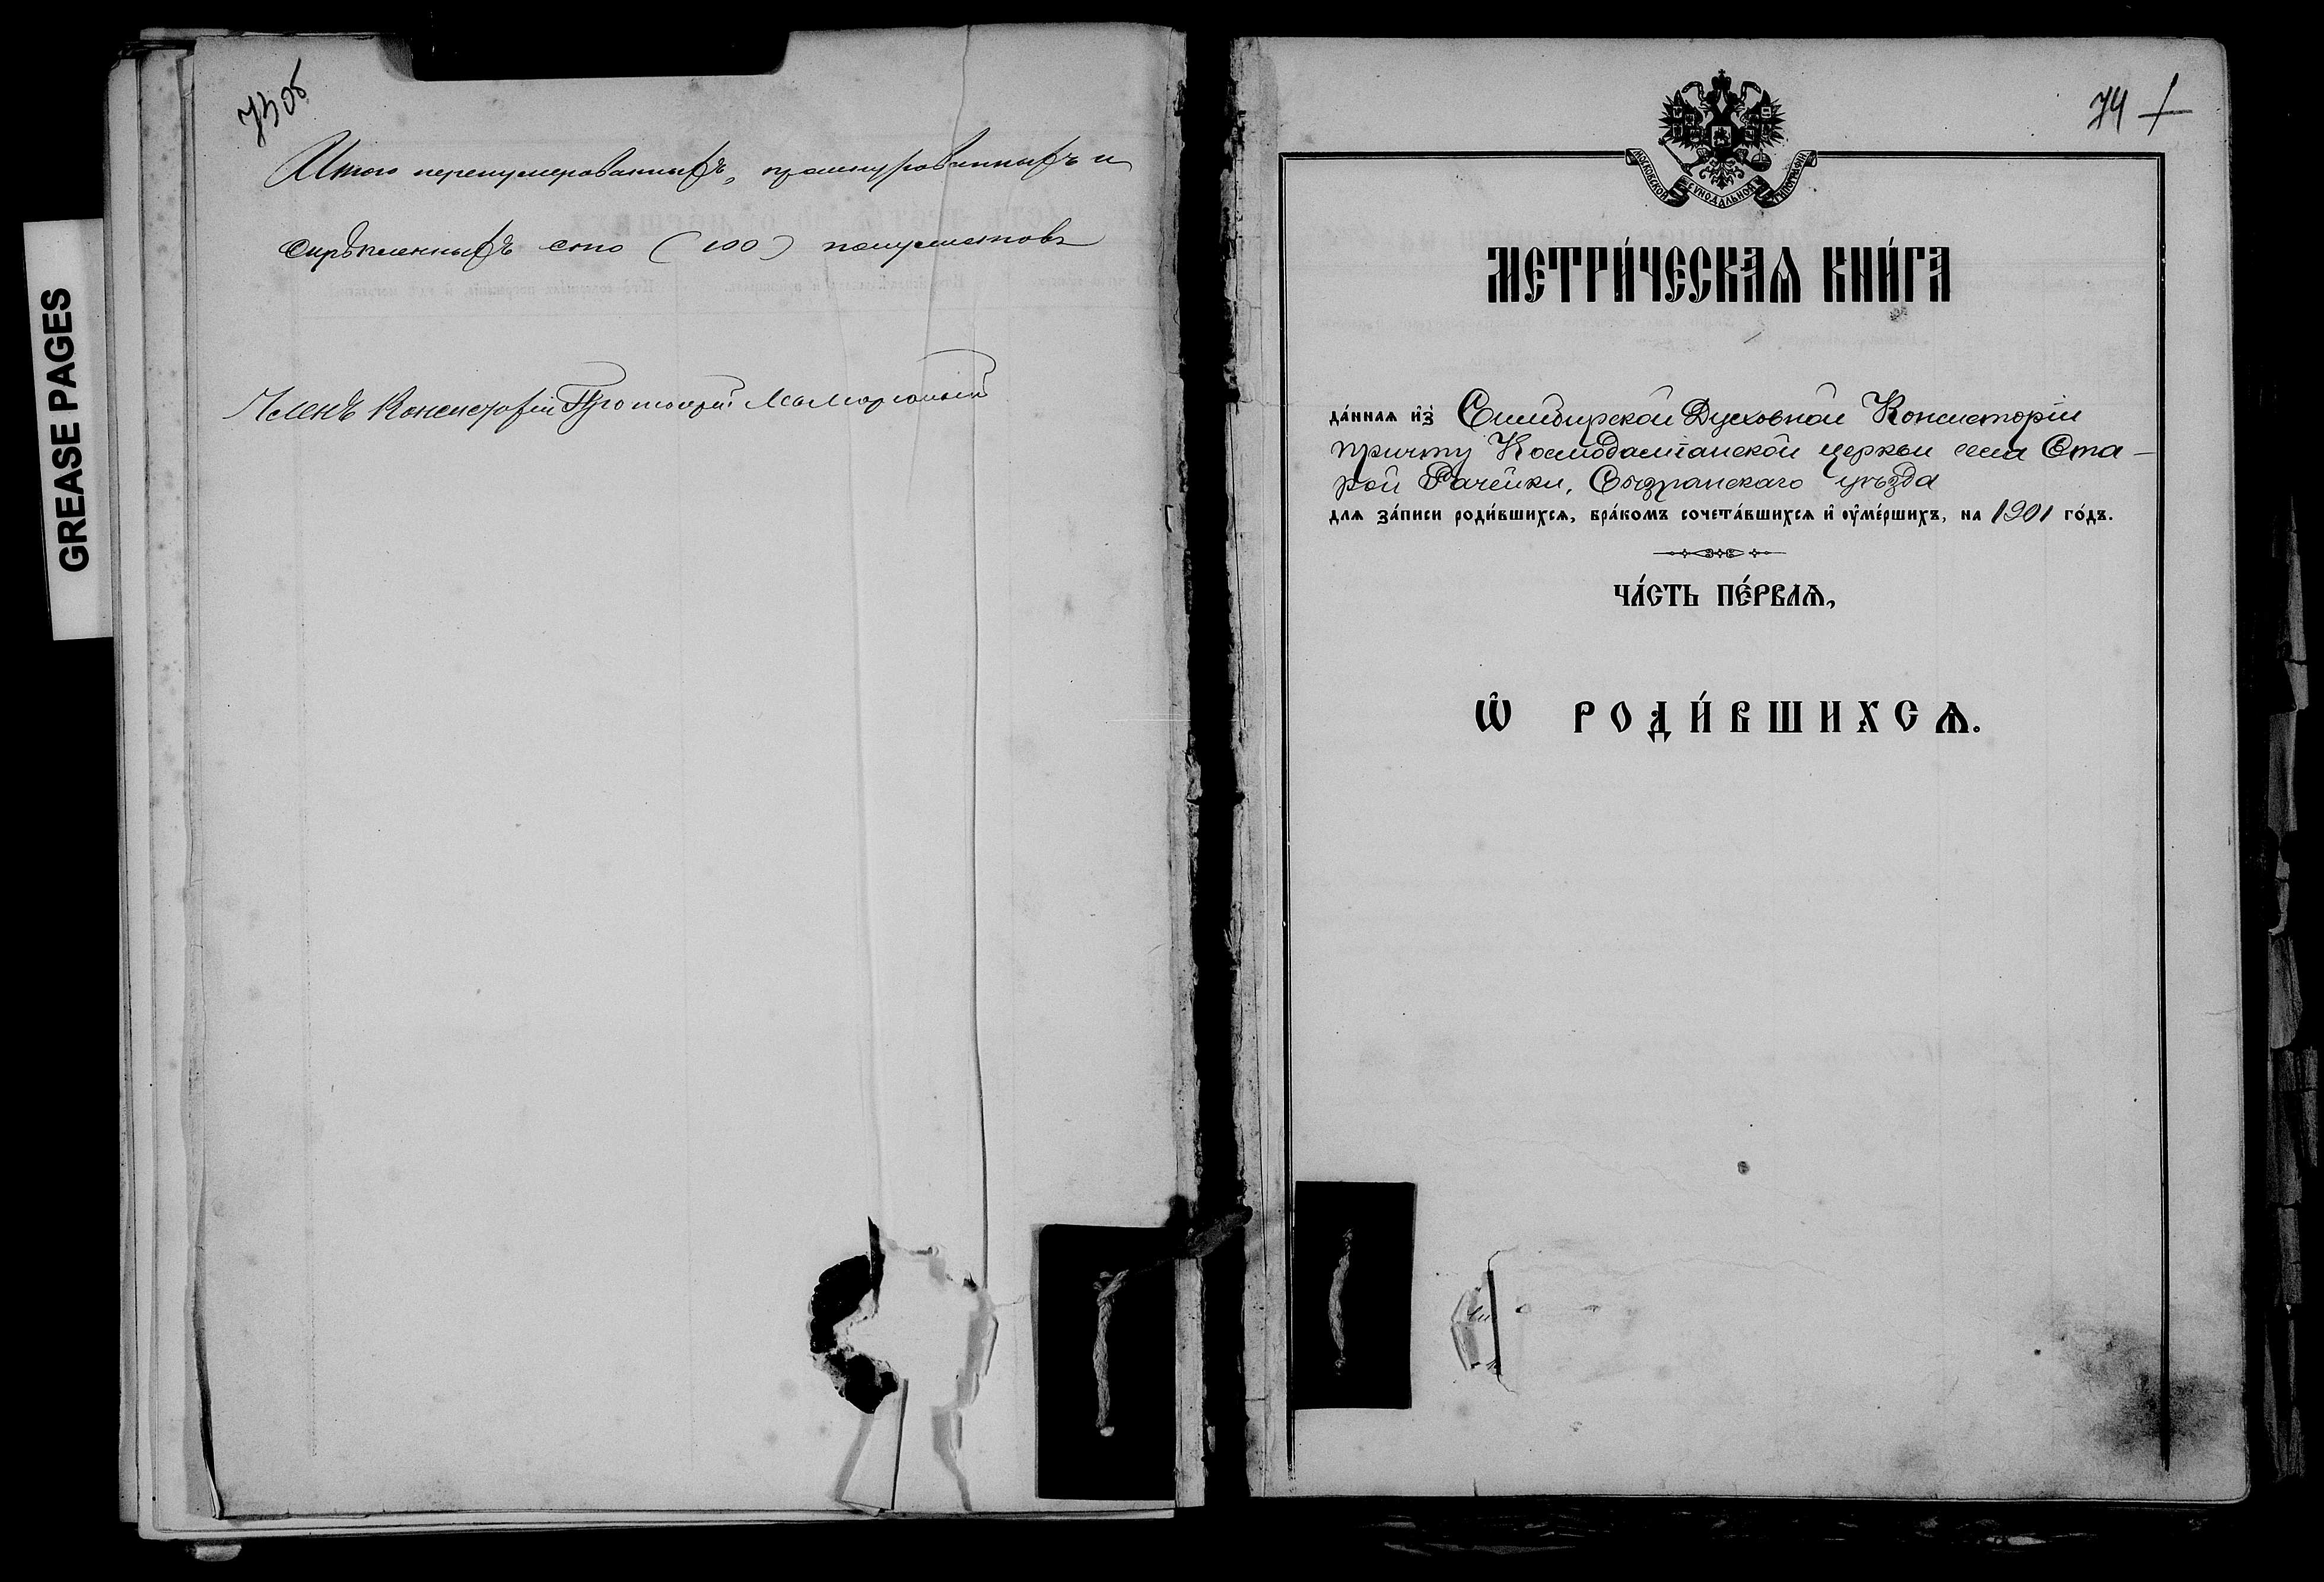 GREASE PAGES
73об
Итого перенумерованныхъ, прошнурованныхъ и
скрѣпленныхъ сто (100) полулистовъ
Членъ Консисторіи Протоіерей
74 1
МОСКОВСКОЙ СѴНОДАЛЬНОЙ ТИПОГРАФІИ
МЕТРИ́ЧЕСКАѦ КНИ́ГА
да́ннаѧ и҆з̾ Симбирской Духовной Консисторіи
причту Космодаміанской церкви села Ста-
рой Рачейки, Сызранскаго уѣзда
длѧ за́писи роди́вшихсѧ, бра́комъ сочета́вшихсѧ и҆ ᲂу҆ме́ршихъ, на 1901 го́дъ.
ЧА́СТЬ ПЕ́РВАѦ,
Ѡ҆ РОДИ́ВШИХСѦ.